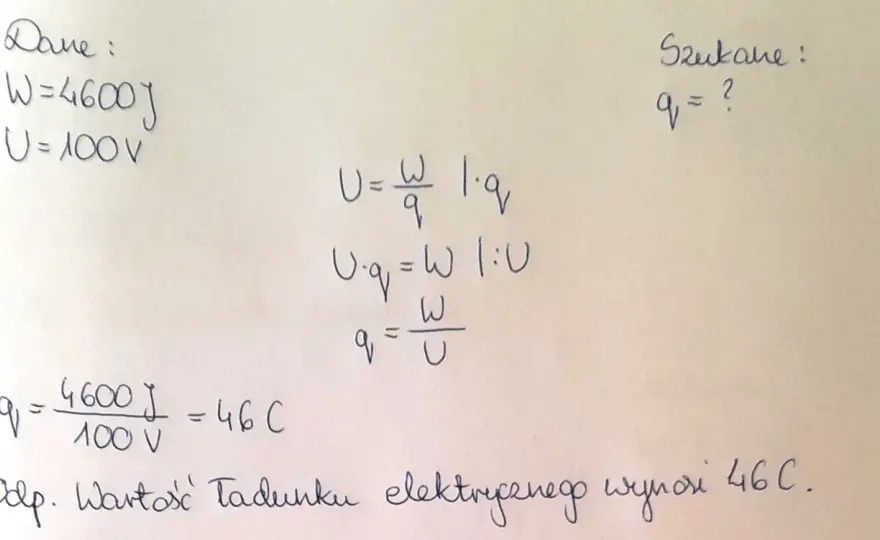 Dane:
Szukane:
W=4600J
q= ?
U=100V
U=W/q |·q
U·q=W |:U
q=W/U
q=4600J/100V=46C
Odp. Wartość ładunku elektrycznego wynosi 46C.